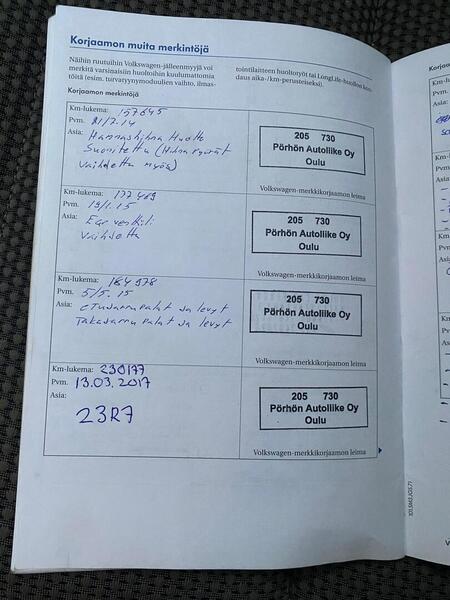 Korjaamon muita merkintöjä
Näihin ruutuihin Volkswagen-jälleenmyyjä voi
merkitä varsinaisiin huoltoihin kuulumattomia
töitä (esim. turvatyynymoduulien vaihto, ilmas-
tointilaitteen huoltotyöt tai LongLife-huollon koo-
daus aika-/km-perusteiseksi).
Korjaamon merkintöjä
Km-lukema: 157645
Pvm. 21/7.14
Asia: Hammashihna Huolto
Suoritettu (Hihna pyörät
vaihdettu myös)
205 730
Pörhön Autoliike Oy
Oulu
Volkswagen-merkkikorjaamon leima
Km-lukema: 177469
Pvm. 19/1.15
Asia: Egr venttiili
vaihdettu
205 730
Pörhön Autoliike Oy
Oulu
Volkswagen-merkkikorjaamon leima
Km-lukema: 184978
Pvm. 5/5.15
Asia: etujarrupalat ja levyt
Takajarrupalat ja levyt
205 730
Pörhön Autoliike Oy
Oulu
Volkswagen-merkkikorjaamon leima
Km-lukema: 230177
Pvm. 13.03.2017
Asia:
23R7
205 730
Pörhön Autoliike Oy
Oulu
Volkswagen-merkkikorjaamon leima